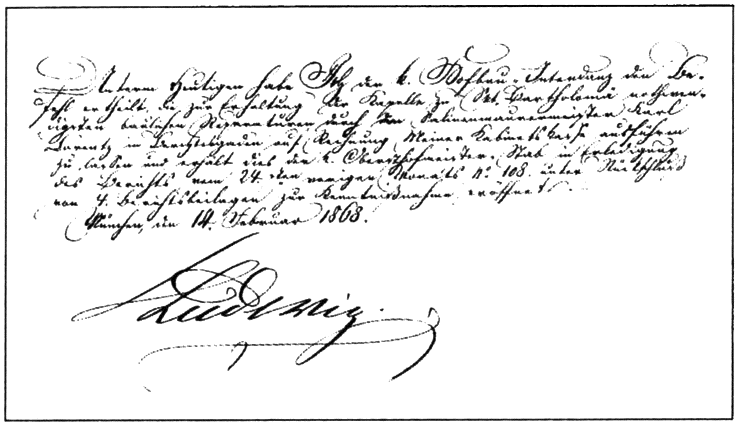 Unterm Heutigen habe Ich der k. Hofbau-Intendanz den Be-
fehl ertheilt, die zur Erhaltung der Kapelle zu Skt. Bartholomä nothwen-
digsten baulichen Reparaturen durch den Salinenmaurermeister Karl
Lorentz in Berchtesgaden auf Rechnung Meiner Kabinetskasse ausführen
zu lassen und erhält dies der k. Obersthofmeister-Stab in Erledigung
des Berichts vom 24. ten vorigen Monats No. 108. unter Rückschluß
von 4. Berichtsbeilagen zur Kenntnißnahme eröffnet.
München, den 14. Februar 1868.
Ludwig.